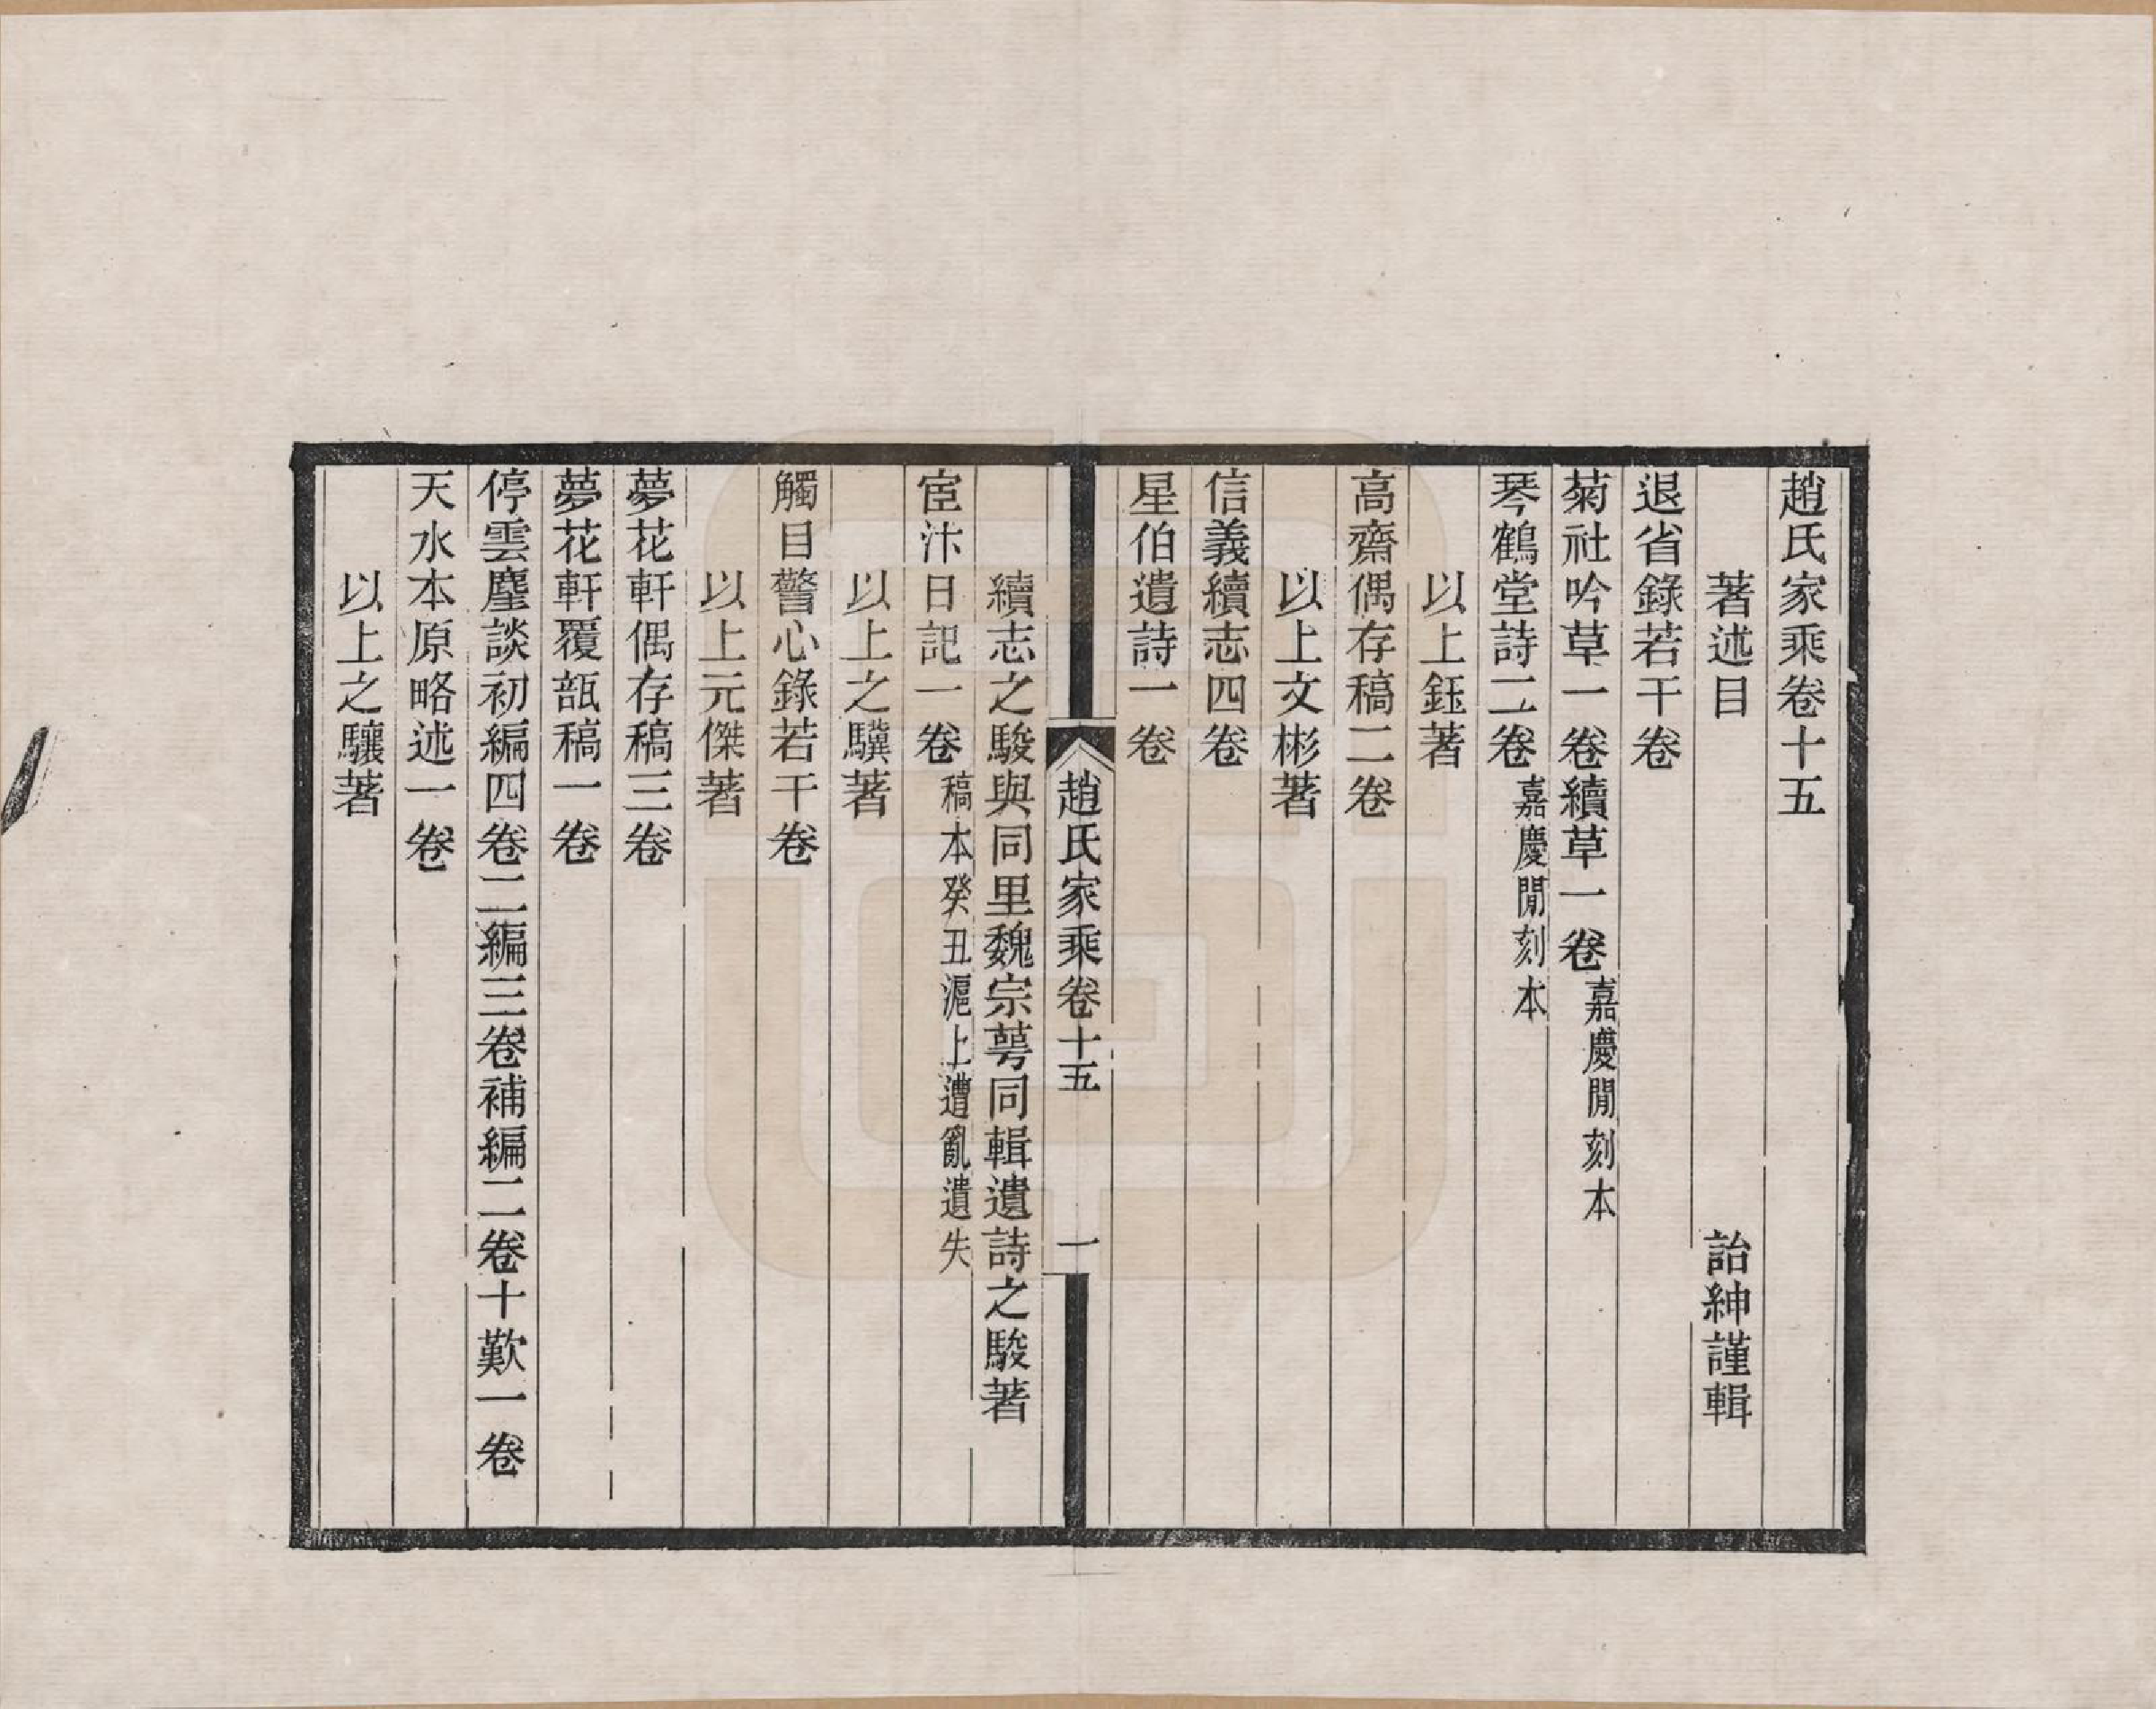 趙氏家乘卷十五
著述目　詒紳謹輯
退省錄若干卷
菊社吟草一卷續草一卷嘉慶閒刻本
琴鶴堂詩二卷嘉慶閒刻本
以上鈺著
高齋偶存稿二卷
以上文彬著
信義續志四卷
星伯遺詩一卷
趙氏家乘卷十五　一
續志之駿與同里魏宗萼同輯遺詩之駿著
宦汴日記一卷稿本癸丑滬上遭亂遺失
以上之驥著
觸目警心錄若干卷
以上元傑著
夢花軒偶存稿三卷
夢花軒覆瓿稿一卷
停雲麈談初編四卷二編三卷補編二卷十歎一卷
天水本原略述一卷
以上之驤著